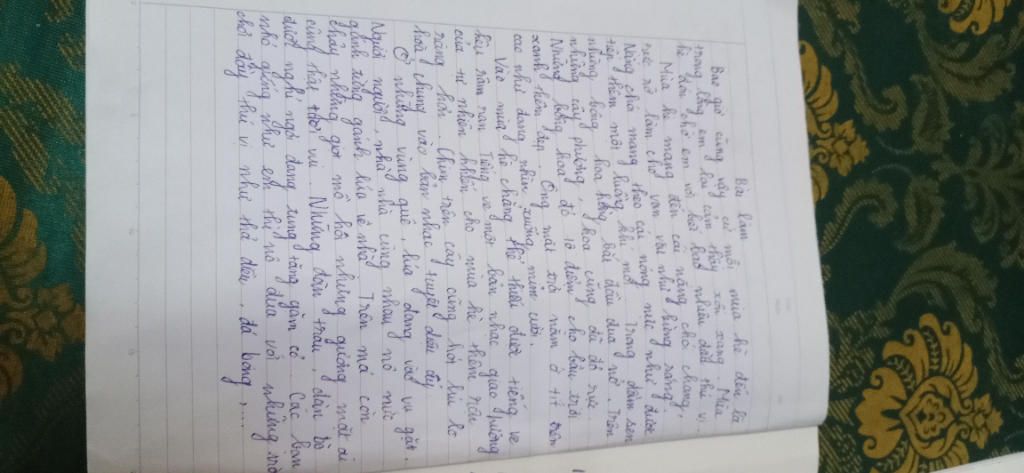 Bài làm
Bao giờ cũng vậy cứ mỗi mùa hè đến là
trong lòng em lại cảm thấy xốn xang. Mùa
hè đến chờ em với bao nhiêu điều thú vị.
Mùa hè mang đến cái nắng chói chang,
rực rỡ làm cho vạn vật như bừng sáng.
Nắng chói mang theo cái nóng nực như được
tiến thêm một luồng khí mới. Trong đầm sen
những bông hoa hồng bắt đầu đua nở. Trên
những cây phượng, hoa cũng đã đỏ rực.
Những bông hoa đỏ tô điểm cho bầu trời
xanh thêm đẹp. Ông mặt trời nằm ở tít trên
cao như đang nhìn xuống mỉm cười.
Vào mùa hè chẳng thể thiếu được tiếng ve
kêu râm ran tiếng ve một bản nhạc giao hưởng
của tự nhiên khiến cho mùa hè thêm rộn
ràng hơn. Chim trên cây cũng hót líu lo
hoà chung vào bản nhạc tuyệt diệu ấy.
Ở những vùng quê, lúa đang vào vụ gặt.
Người người, nhà nhà cùng nhau nô nức
gánh từng gánh lúa về nhà. Trên má còn
chảy những giọt mồ hôi nhưng gương mặt ai
cũng thật tươi vui. Những đàn trâu, đàn bò
được nghỉ ngơi đang tung tăng gặm cỏ. Các bạn
nhỏ giống như em thì nô đùa với những trò
chơi đầy thú vị như thả diều, đá bóng,...